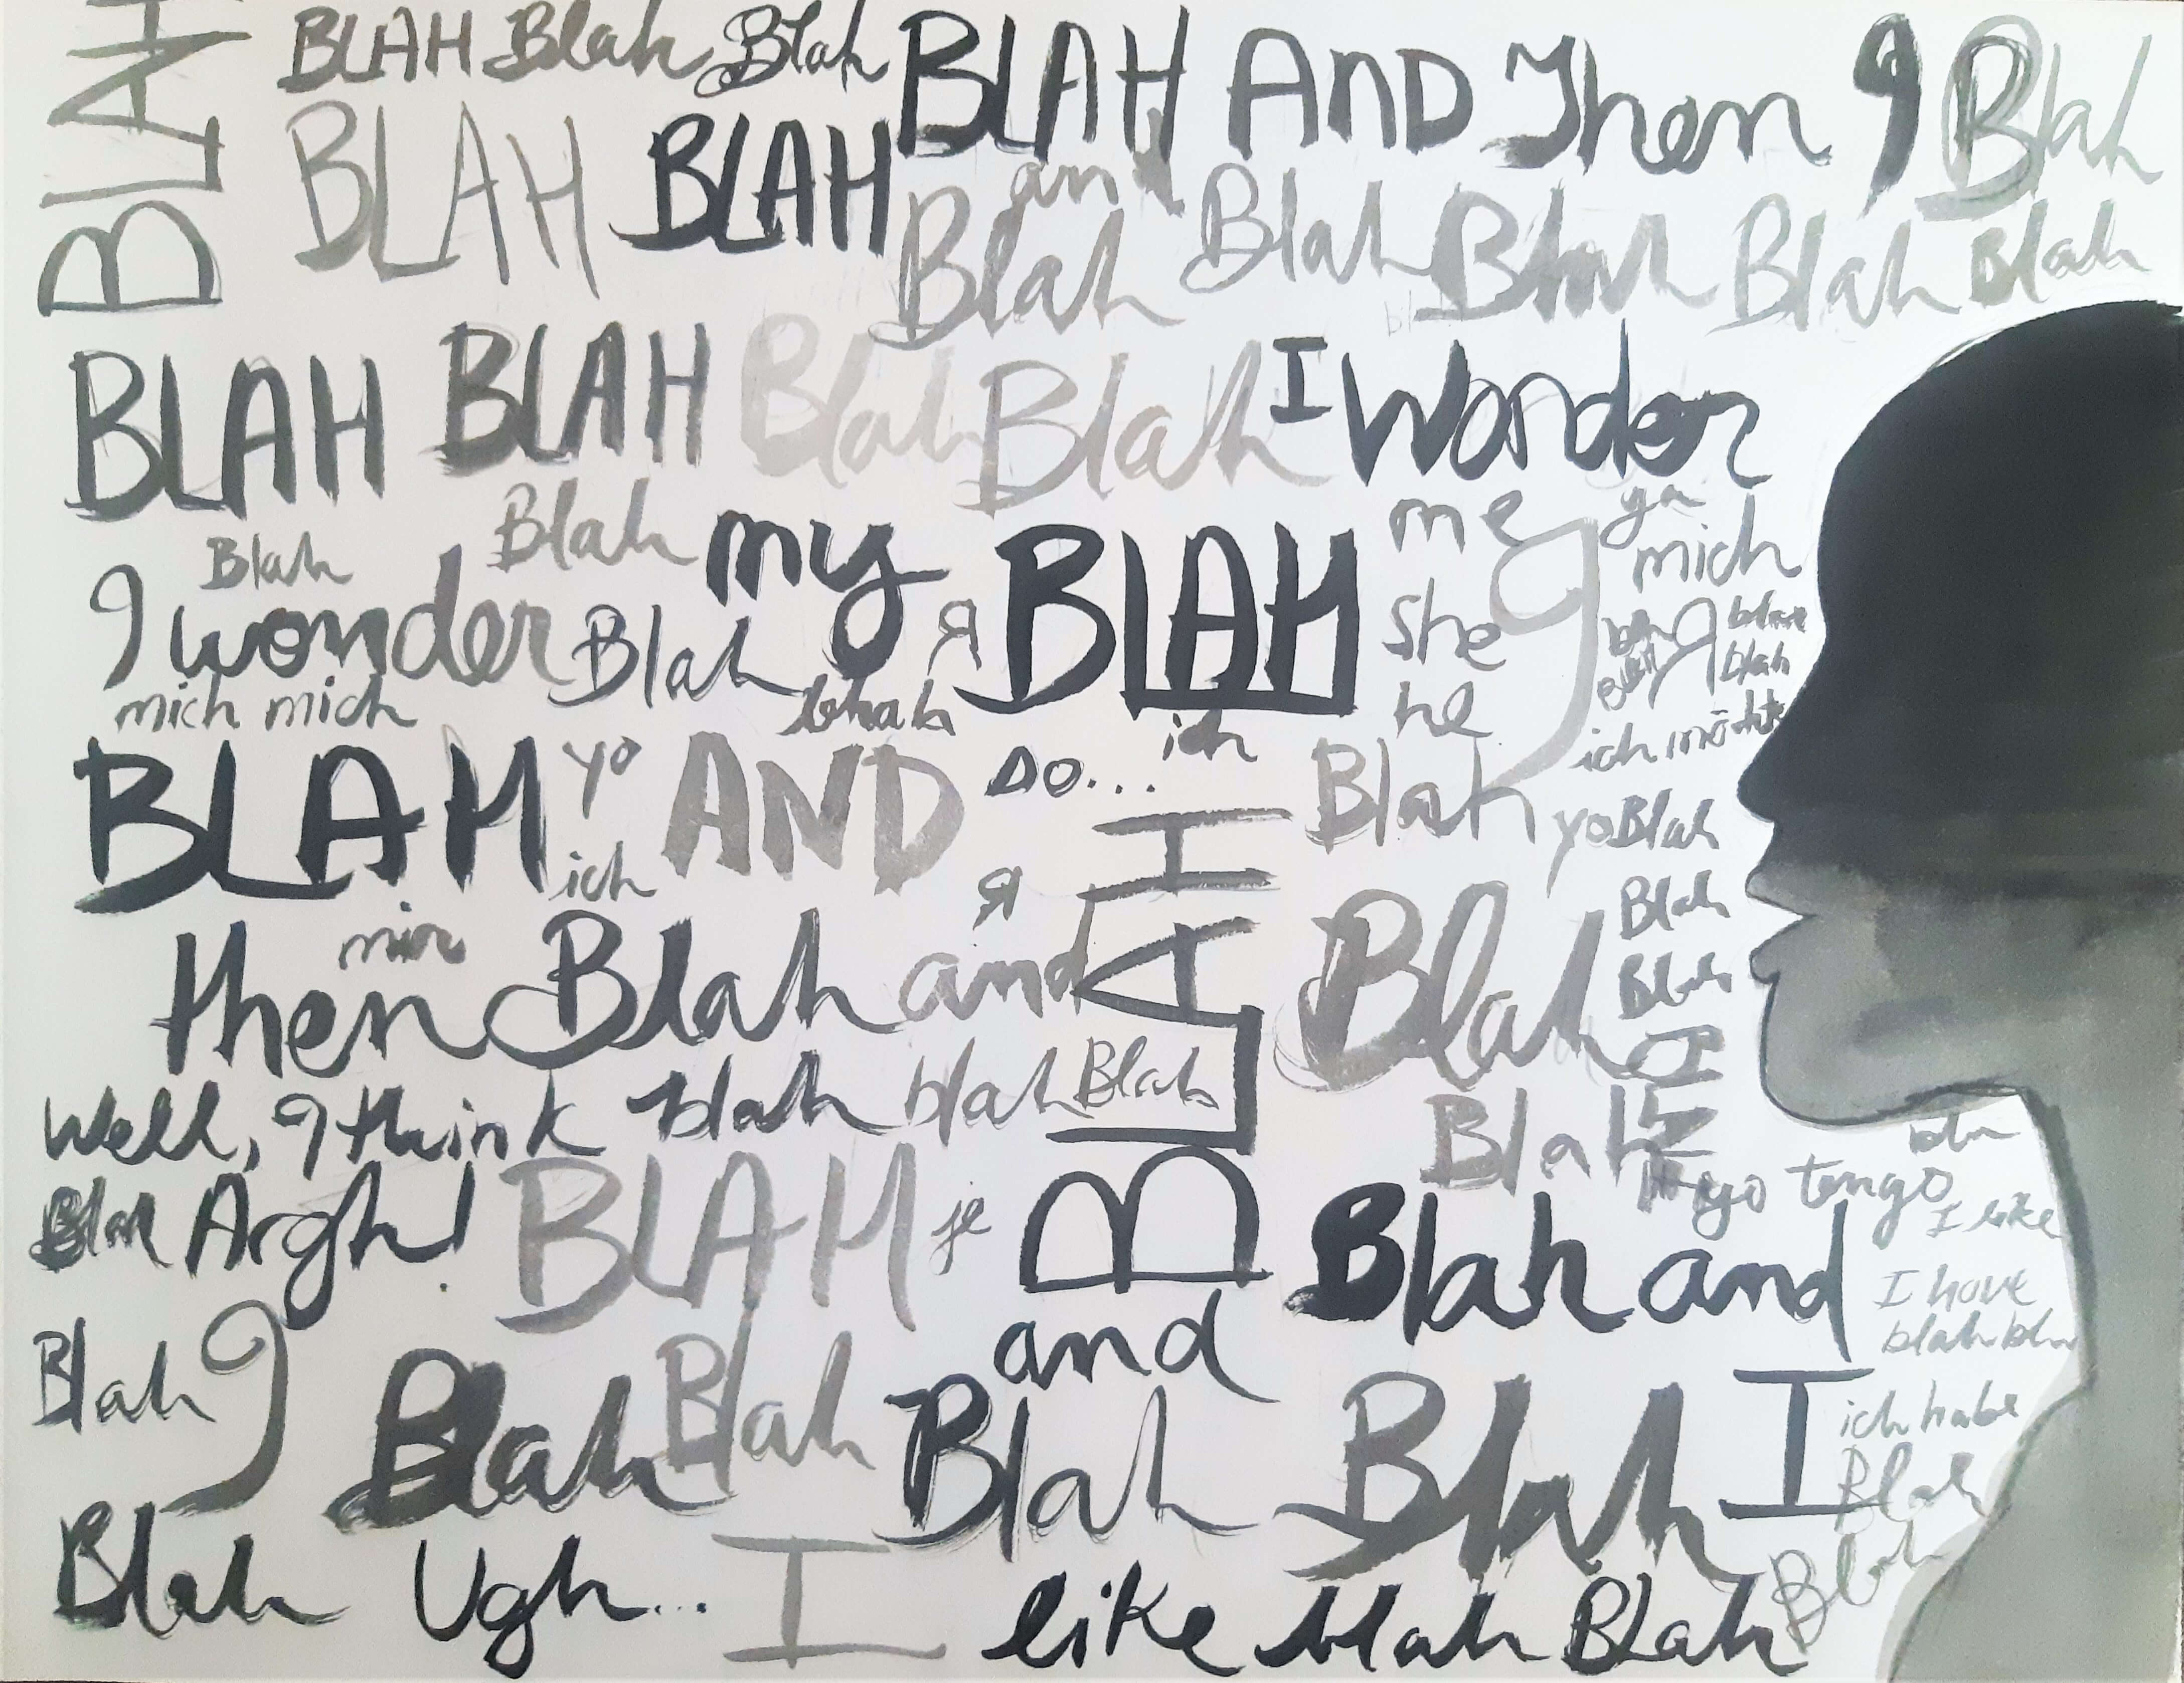 BLAH
BLAH Blah Blah BLAH AND Then I Blah
BLAH BLAH
and
Blah Blah Blah Blah Blah
BLAH BLAH Blah Blah I Wonder
Blah Blah my BLAH me ya
mich
I wonder Blah Я she I
blah
mich mich he
ich möchte
BLAH yo AND so... ich Blah
yo Blah
ich Я Blah
mir
then Blah and BLAH Blah Blah
Well, I think blah blah Blah Blah
yo tengo
I like
Blah Argh! BLAH je Blah and
I have
blah
Blah I and
Blah Blah Blah Blah I ich habe
Blah
Blah Ugh... I Blah
like blah Blah